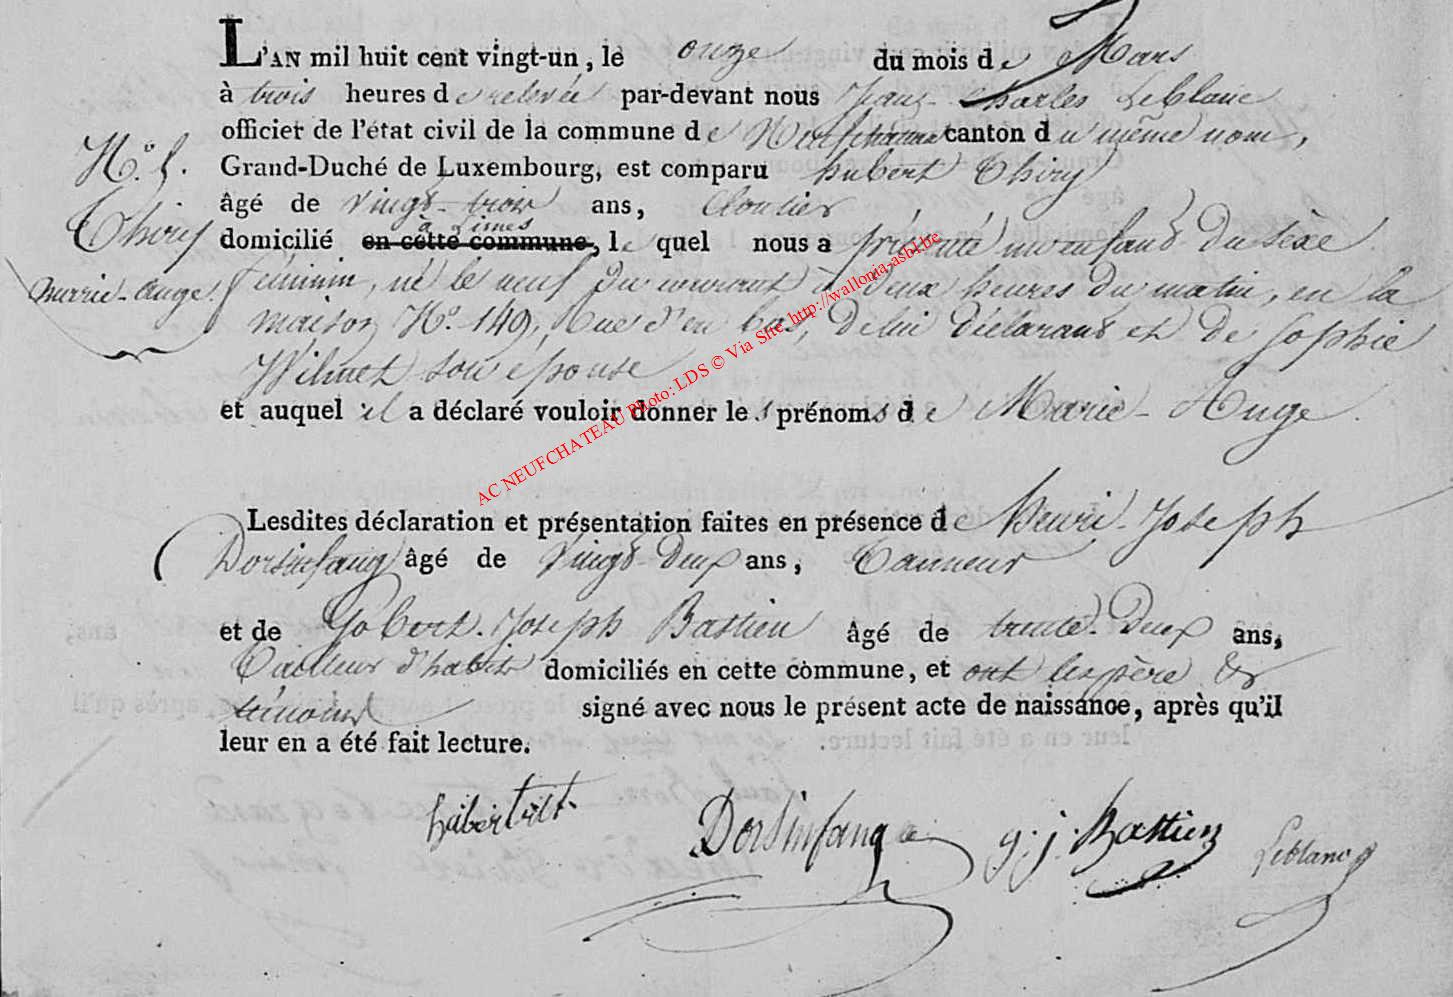 L'AN mil huit cent vingt-un, le onze du mois de Mars
à trois heures de relevée par-devant nous Jean-Charles Leblanc
officier de l'état civil de la commune de Neufchateau canton du même nom,
Grand-Duché de Luxembourg, est comparu hubert Thiry
âgé de vingt-trois ans, Cloutier
à Limes
domicilié en cette commune, lequel nous a présenté un enfant du sèxe
féminin, né le neuf du courant à deux heures du matin, en la
maison N.o 149, Rue d'en bas, de lui déclarant et de Sophie
Wilmet son epouse
et auquel il a déclaré vouloir donner les prénoms de Marie-Ange.
N.o 5.
Thiry
Marie-Ange.
Lesdites déclaration et présentation faites en présence de henri-Joseph
Dorsinfang âgé de vingt-deux ans, Tanneur
et de Gobert-Joseph Bastien âgé de trente-deux ans,
Tailleur d'habits domiciliés en cette commune, et ont les père &
témoins signé avec nous le présent acte de naissance, après qu'il
leur en a été fait lecture.
Dorsinfang
g. j. Bastien
Leblanc
AC NEUFCHATEAU Photo: LDS © Via Site http://wallonia-asbl.be